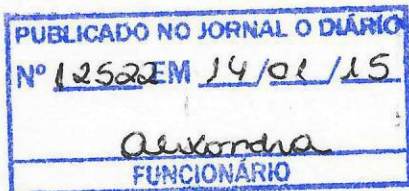 PUBLICADO NO JORNAL O DIÁRIO
Nº 12522 EM 14/01/15
FUNCIONÁRIO